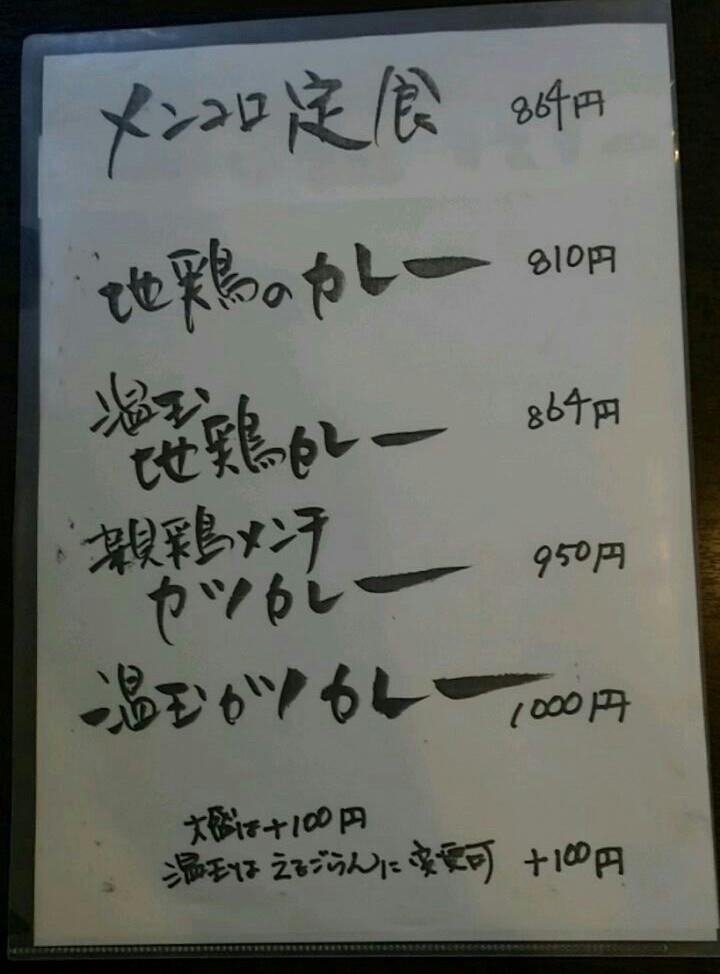 メンコロ定食 864円
地鶏のカレー 810円
温玉
地鶏カレー 864円
親鶏メンチ
カツカレー 950円
温玉カツカレー 1000円
大盛は+100円
温玉は えごらんに 変更可 +100円